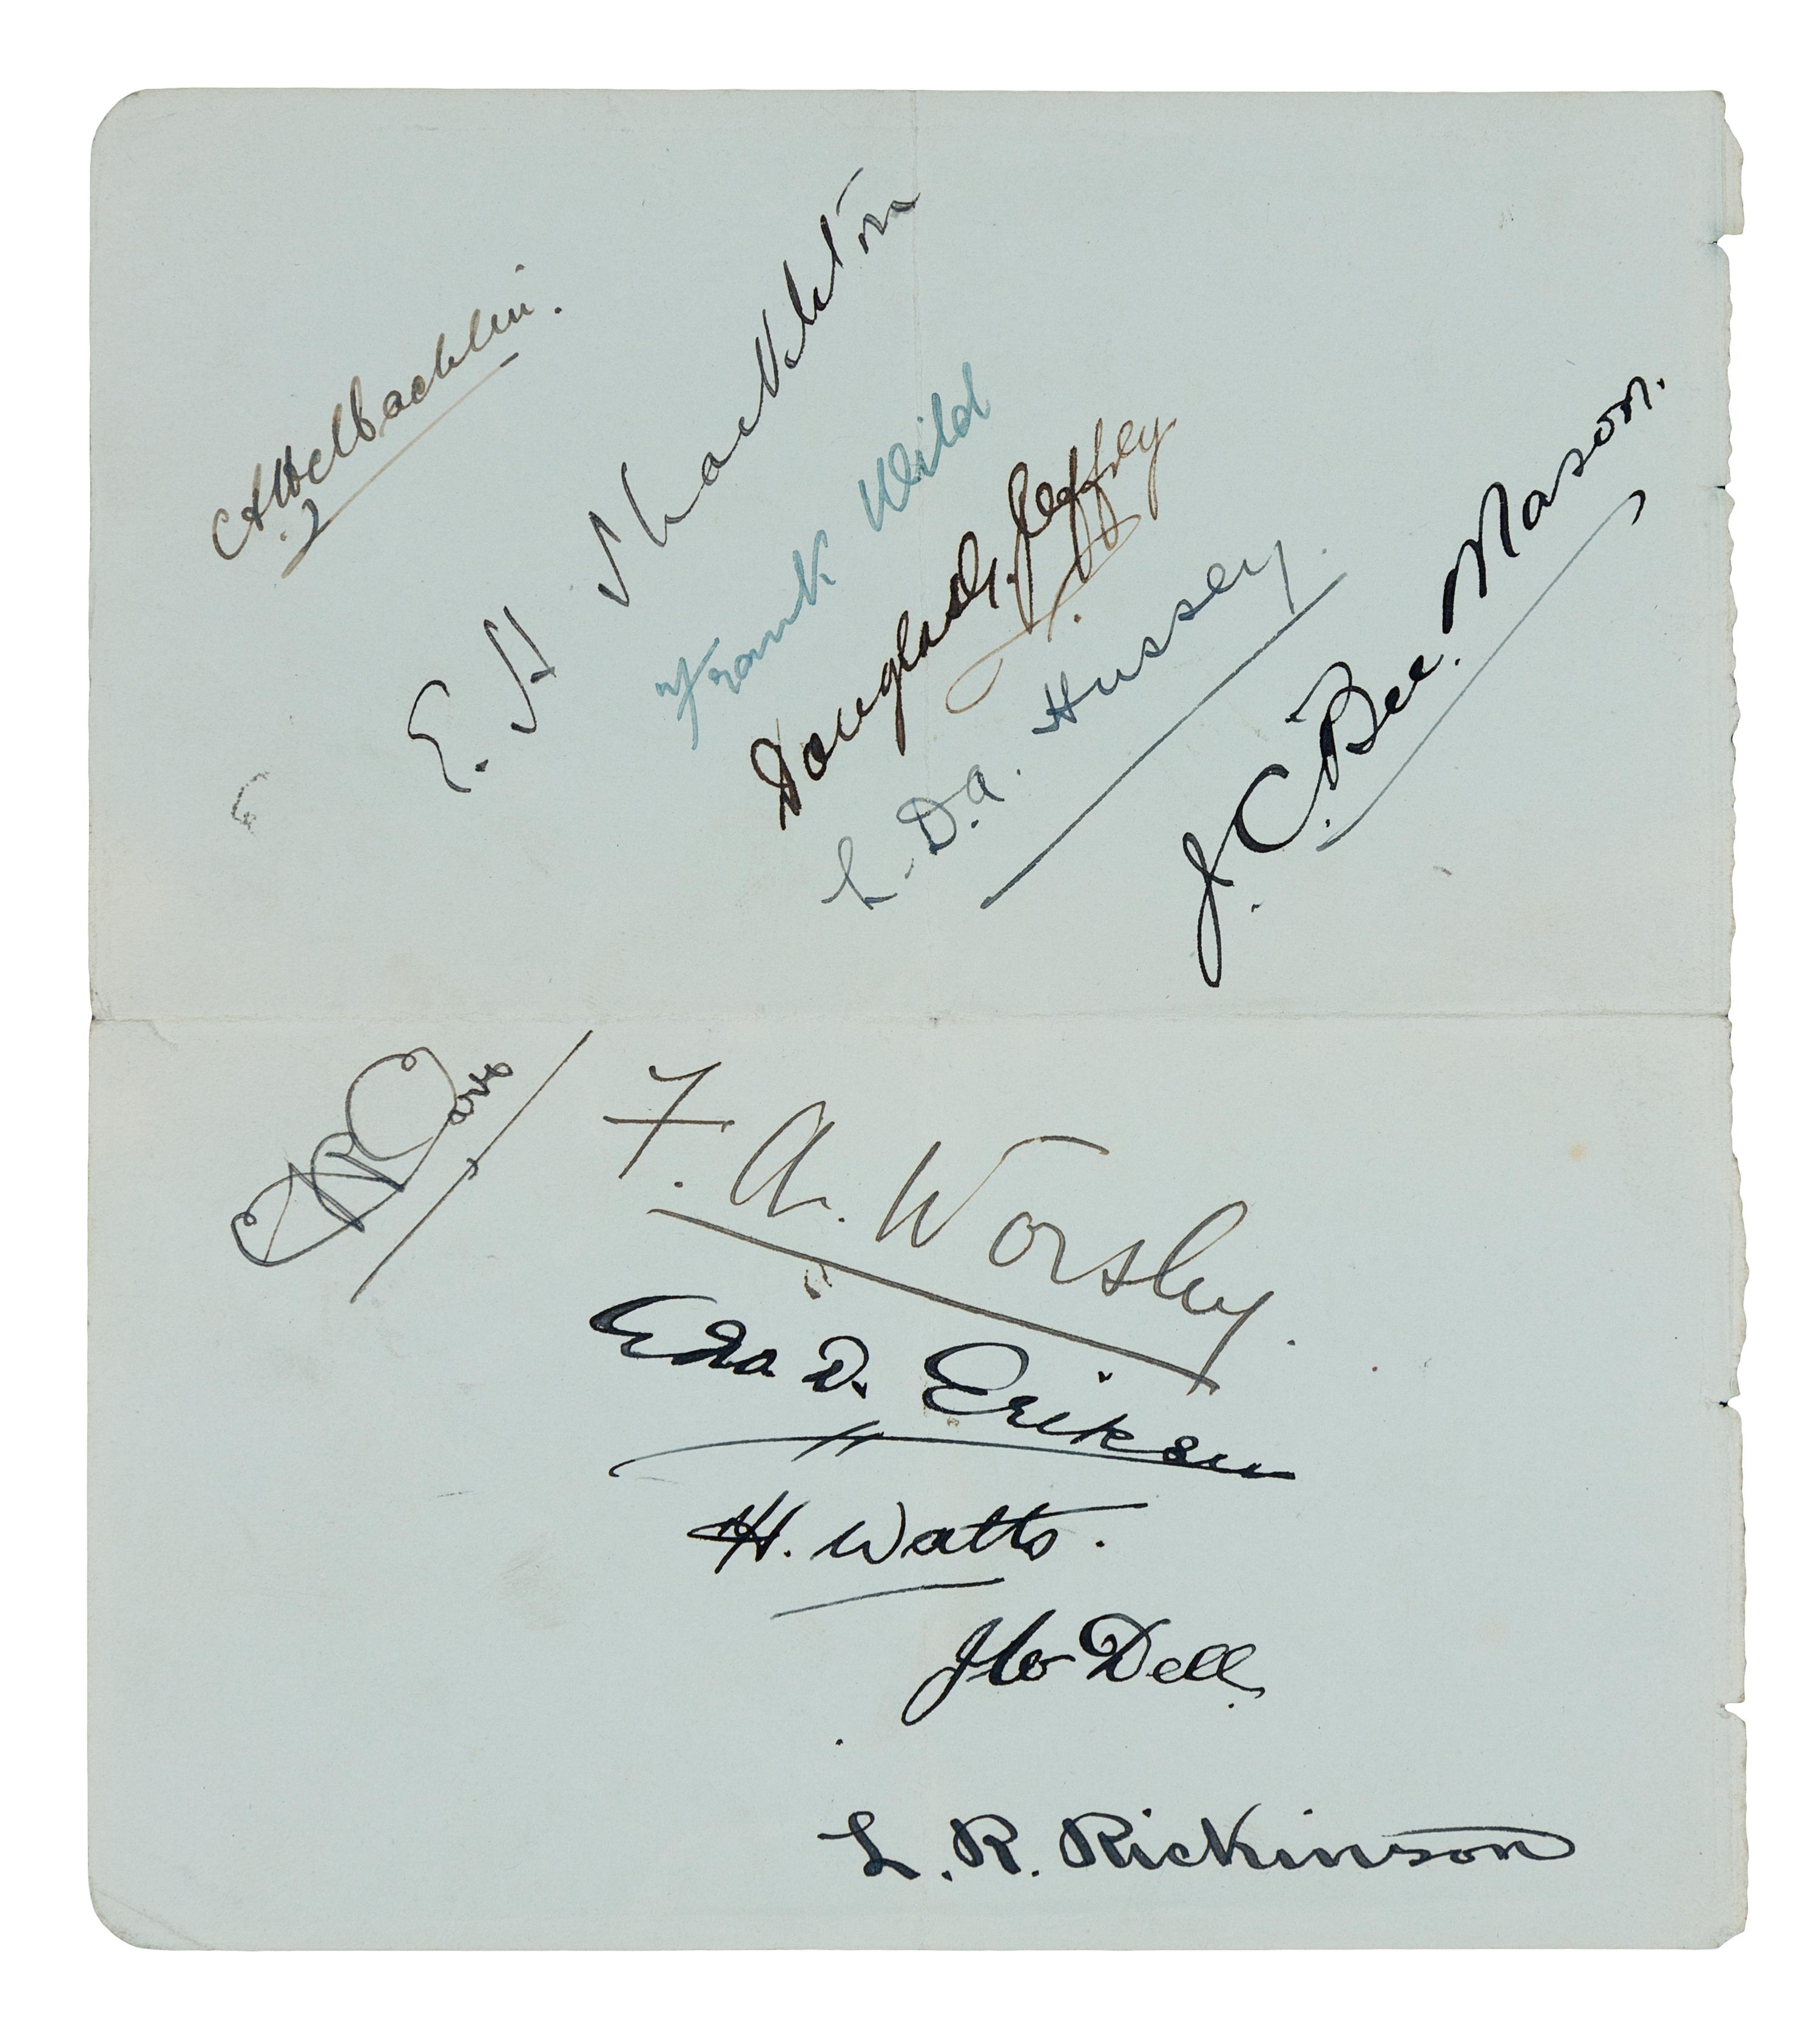 E. H Shackleton
Frank Wild
Douglas G. Jeffrey
L. D. A. Hussey.
J. C. Bee. Mason.
CR Carr
F. A. Worsley.
D. Eriksen
H. Watts.
Dell
L. R. Rickinson